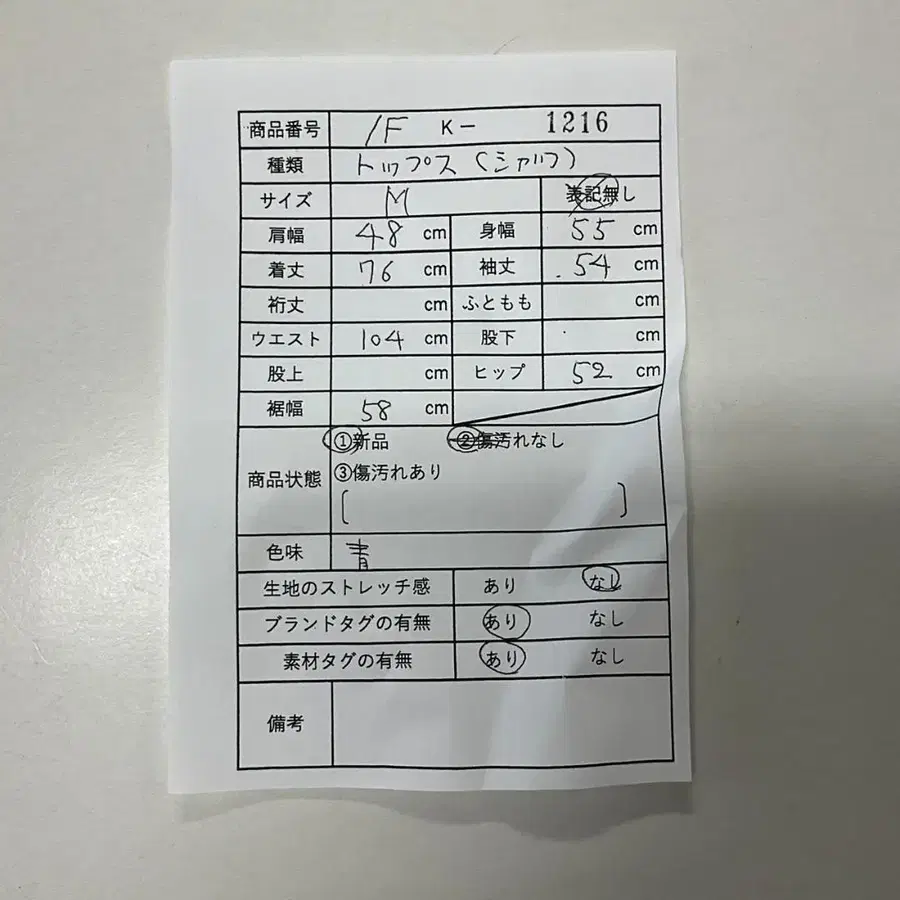 商品番号 1F K- 1216
種類 トップス(シャツ)
サイズ M 表記無し
肩幅 48 cm 身幅 55 cm
着丈 76 cm 袖丈 54 cm
裄丈 cm ふともも cm
ウエスト 104 cm 股下 cm
股上 cm ヒップ 52 cm
裾幅 58 cm
①新品 ②傷汚れなし
商品状態 ③傷汚れあり
[ ]
色味 青
生地のストレッチ感 あり なし
ブランドタグの有無 あり なし
素材タグの有無 あり なし
備考